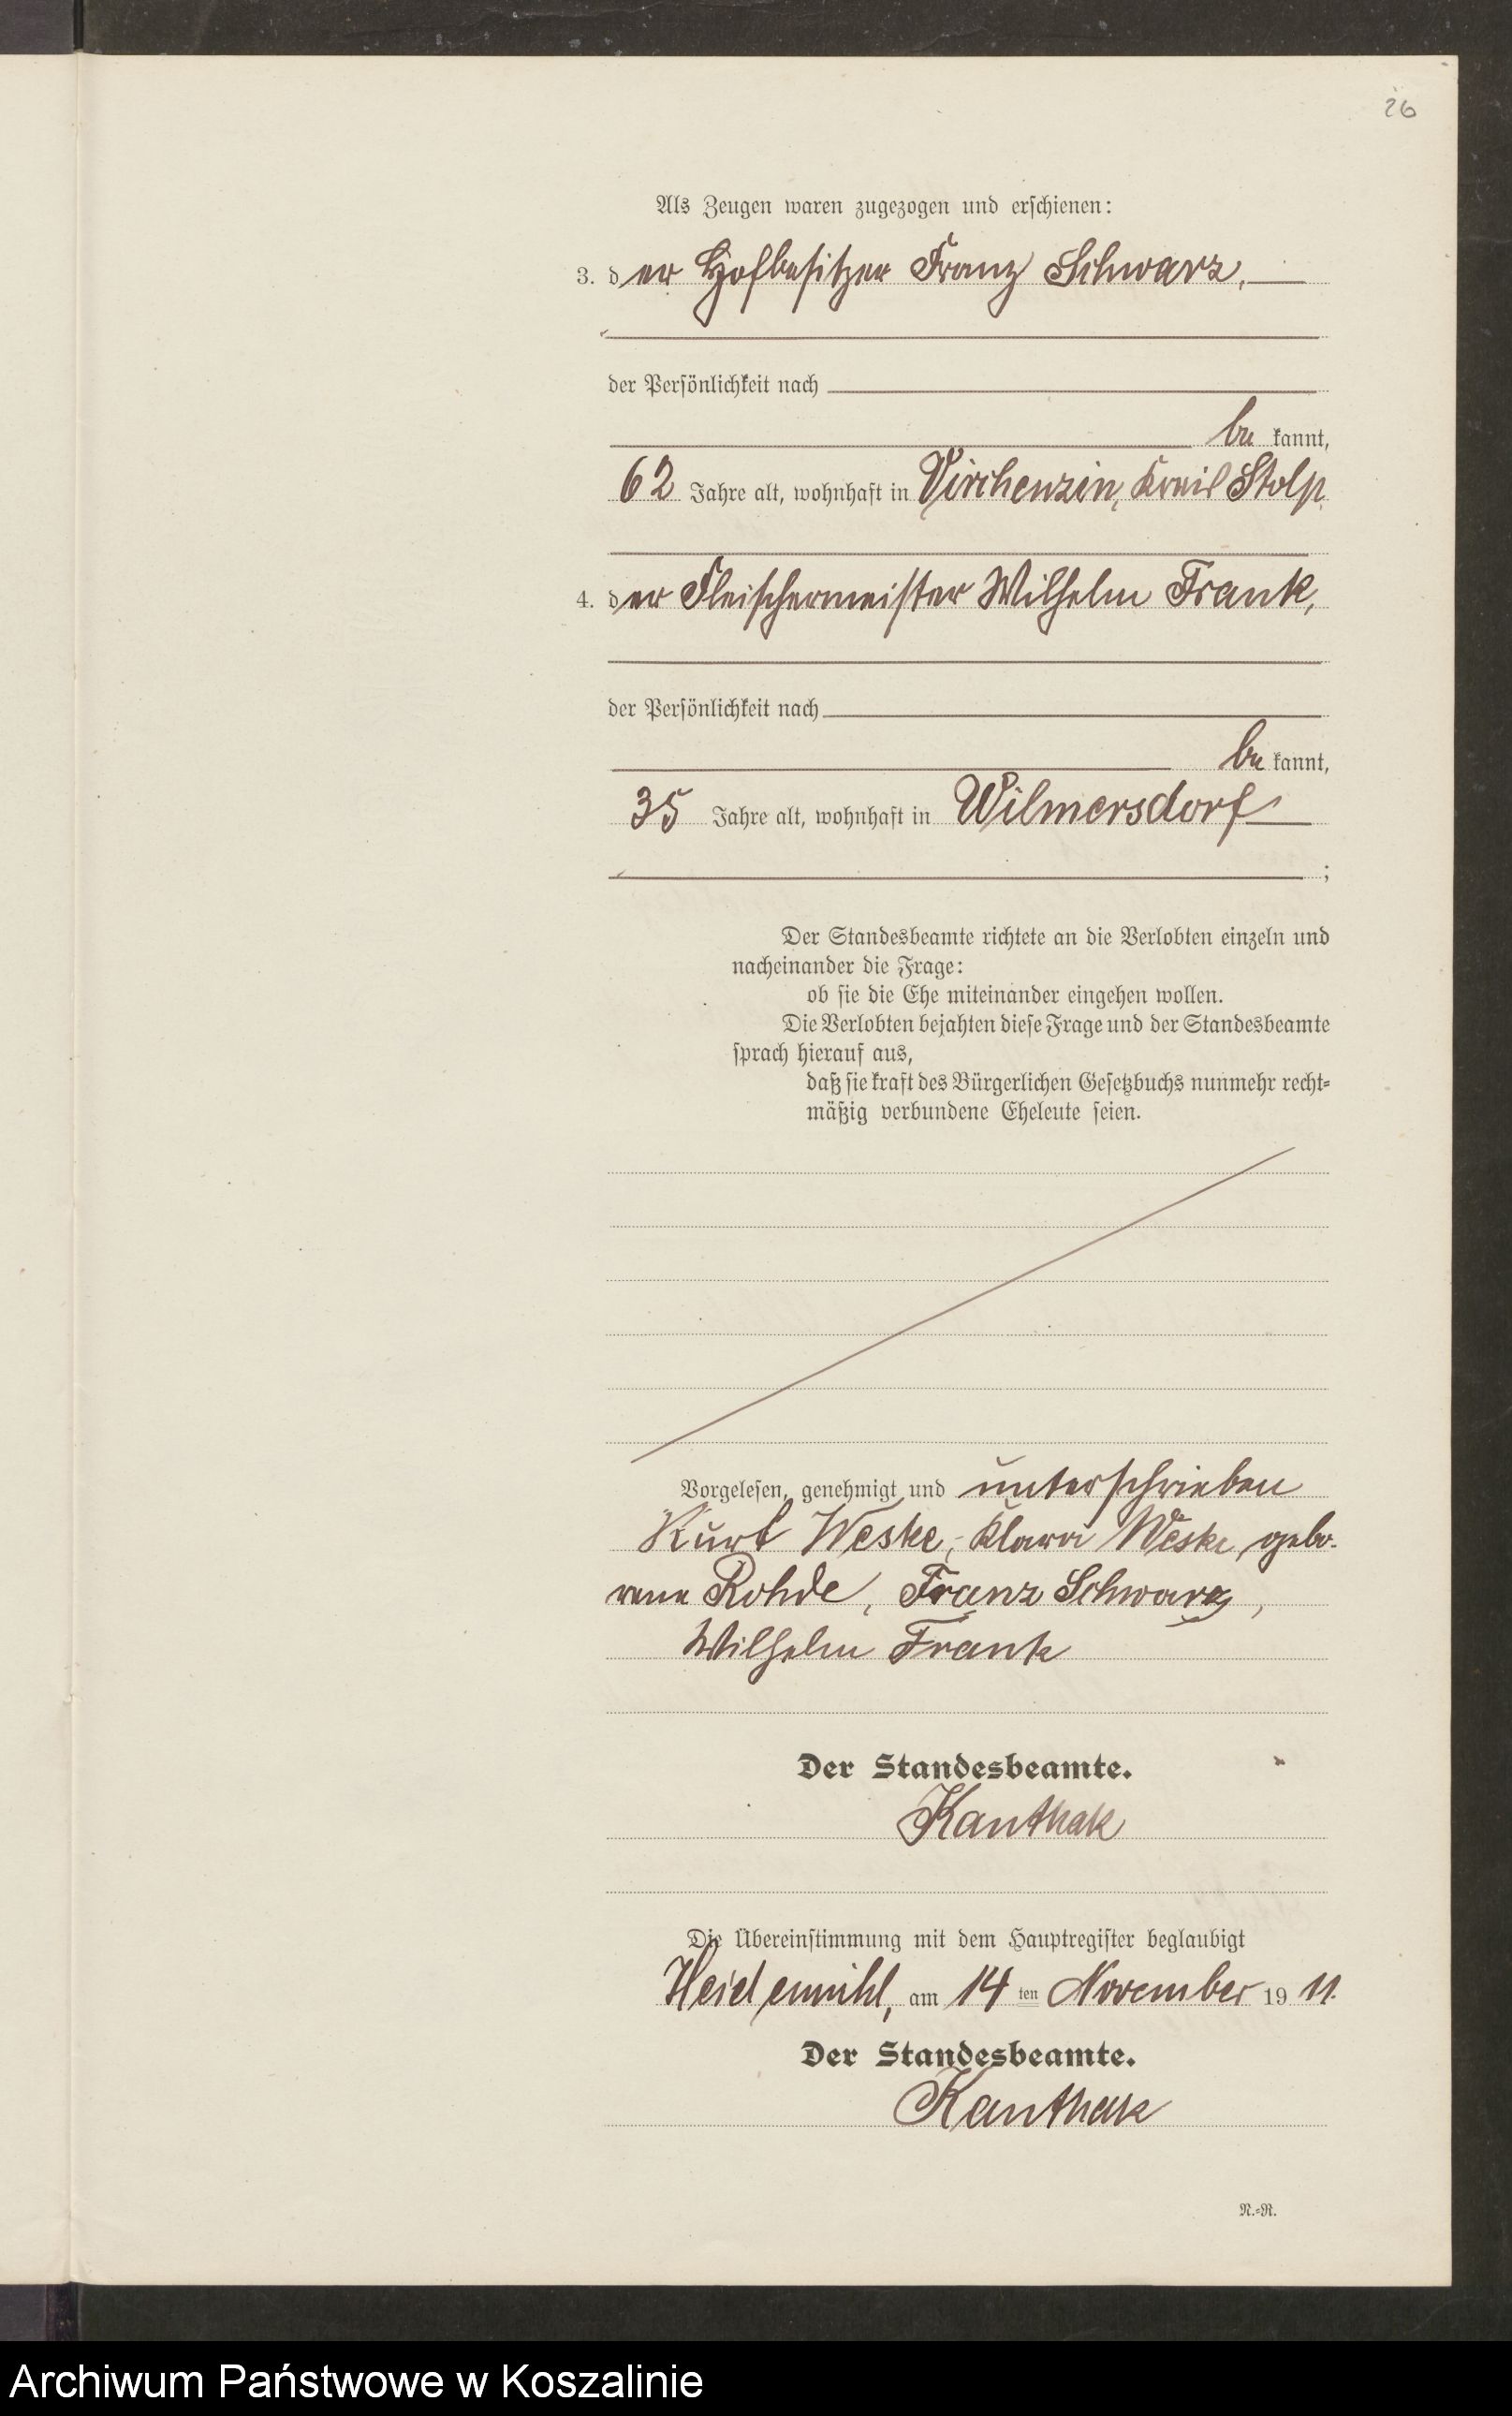 26
Als Zeugen waren zugezogen und erschienen:
3. der Hofbesitzer Franz Schwarz,
der Persönlichkeit nach
be kannt,
62 Jahre alt, wohnhaft in Virchenzin, Kreis Stolp
4. der Fleischermeister Wilhelm Frank,
der Persönlichkeit nach
be kannt,
35 Jahre alt, wohnhaft in Wilmersdorf
;
Der Standesbeamte richtete an die Verlobten einzeln und
nacheinander die Frage:
ob sie die Ehe miteinander eingehen wollen.
Die Verlobten bejahten diese Frage und der Standesbeamte
sprach hierauf aus,
daß sie kraft des Bürgerlichen Gesetzbuchs nunmehr recht-
mäßig verbundene Eheleute seien.
Vorgelesen, genehmigt und unterschrieben
Kurt Weske, Klara Weske, gebo-
rene Rohde, Franz Schwarz,
Wilhelm Frank
Der Standesbeamte.
Kanthak
Die Übereinstimmung mit dem Hauptregister beglaubigt
Heidemühl, am 14 ten November 19 11.
Der Standesbeamte.
Kanthak
N.-R.
Archiwum Państwowe w Koszalinie